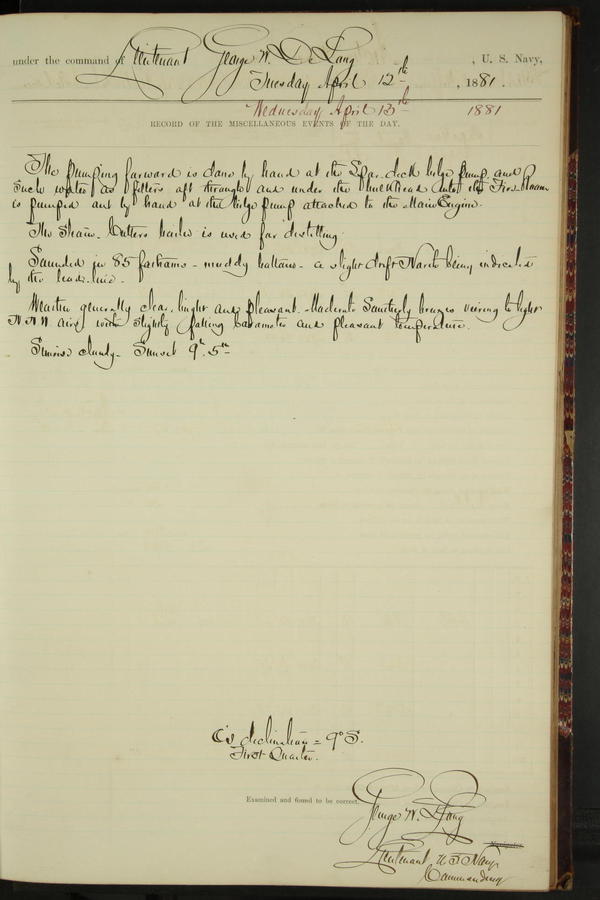 under the command of Lieutenant George W. De Long, U. S. Navy,
Tuesday April 12th, 1881.
Wednesday April 13th 1881
RECORD OF THE MISCELLANEOUS EVENTS OF THE DAY.
The pumping forward is done by hand at the Spar deck bilge pump, and
such water as filters aft through and under the bulkhead into the Fire Room
is pumped out by hand at the bilge pump attached to the Main Engine.
The Steam Cutters boiler is used for distilling.
Sounded in 85 fathoms - muddy bottom - a slight drift North being indicated
by the lead line.
Weather generally clear, bright and pleasant. Moderate Southerly breezes veering to light
N N W airs with slightly falling barometer and pleasant temperature.
Sunrise cloudy. Sunset 9h. 5m
☾'s declination = 9° S.
First Quarter.
Examined and found to be correct.
George W. De Long
Navigator.
Lieutenant U S Navy
Commanding